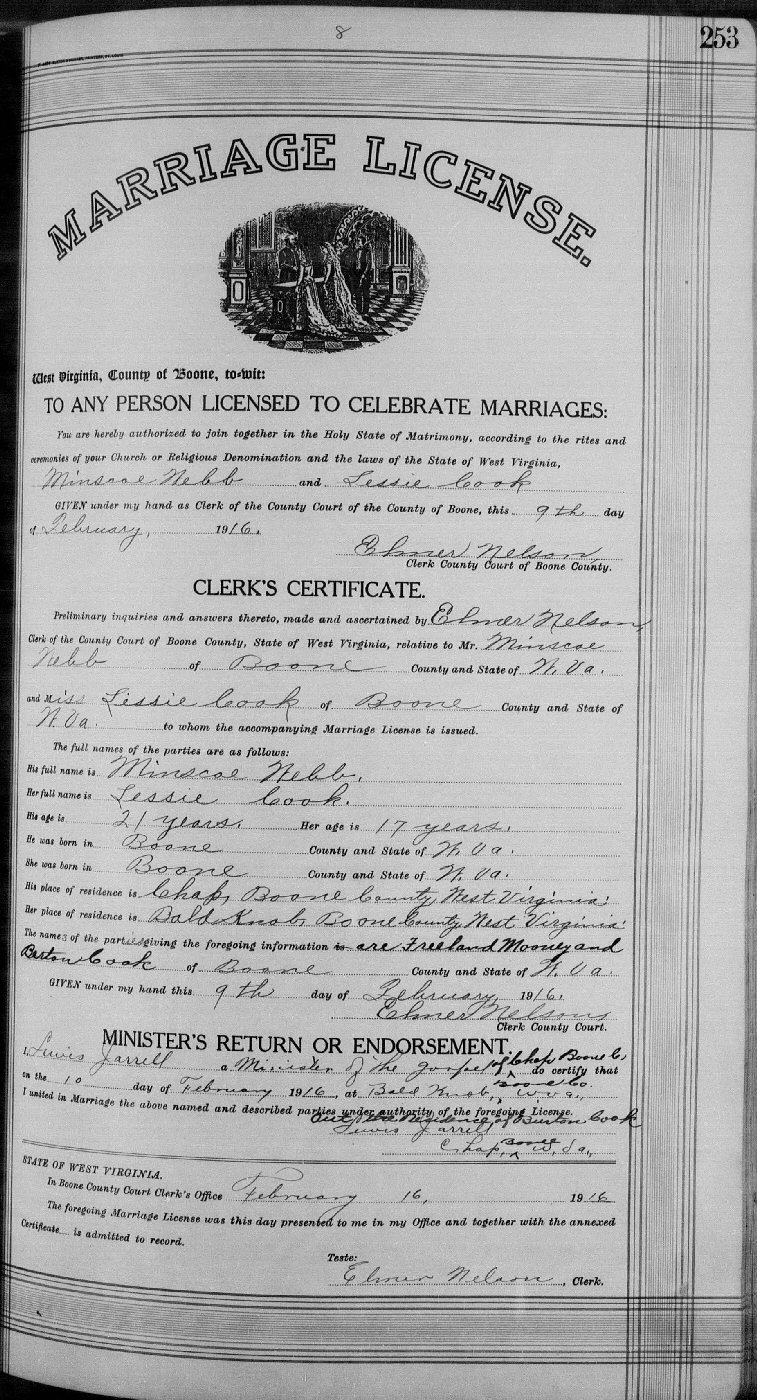 8
253
MARRIAGE LICENSE.
West Virginia, County of Boone, to-wit:
TO ANY PERSON LICENSED TO CELEBRATE MARRIAGES:
You are hereby authorized to join together in the Holy State of Matrimony, according to the rites and
ceremonies of your Church or Religious Denomination and the laws of the State of West Virginia,
Minscoe Webb and Lessie Cook
GIVEN under my hand as Clerk of the County Court of the County of Boone, this 9th day
of February, 1916.
Elmer Nelson
Clerk County Court of Boone County.
CLERK'S CERTIFICATE.
Preliminary inquiries and answers thereto, made and ascertained by Elmer Nelson,
Clerk of the County Court of Boone County, State of West Virginia, relative to Mr. Minscoe
Webb of Boone County and State of W. Va.
and Miss Lessie Cook of Boone County and State of
W. Va. to whom the accompanying Marriage License is issued.
The full names of the parties are as follows:
His full name is Minscoe Webb.
Her full name is Lessie Cook.
His age is 21 years. Her age is 17 years.
He was born in Boone County and State of W. Va.
She was born in Boone County and State of W. Va.
His place of residence is Chap, Boone County, West Virginia.
Her place of residence is Bald Knob, Boone County, West Virginia.
The names of the parties giving the foregoing information is are Freeland Mooney and
Burton Cook of Boone County and State of W. Va.
GIVEN under my hand this 9th day of February, 1916.
Elmer Nelson
Clerk County Court.
MINISTER'S RETURN OR ENDORSEMENT.
I, Lewis Jarrell a Minister of the gospel of Chap Boone Co do certify that
on the 10 day of February 1916, at Bald Knob, Boone Co. W. Va.,
I united in Marriage the above named and described parties under authority of the foregoing License.
the Residence of Burton Cook
Lewis Jarrell
Chap, Boone W. Va.,
STATE OF WEST VIRGINIA.
In Boone County Court Clerk's Office February 16, 1916
The foregoing Marriage License was this day presented to me in my Office and together with the annexed
Certificate is admitted to record.
Teste:
Elmer Nelson, Clerk.